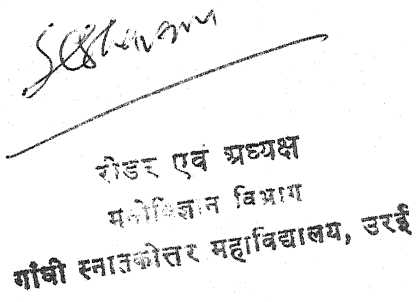 रीडर एवं अध्यक्ष
मनोविज्ञान विभाग
गांधी स्नातकोत्तर महाविद्यालय, उरई